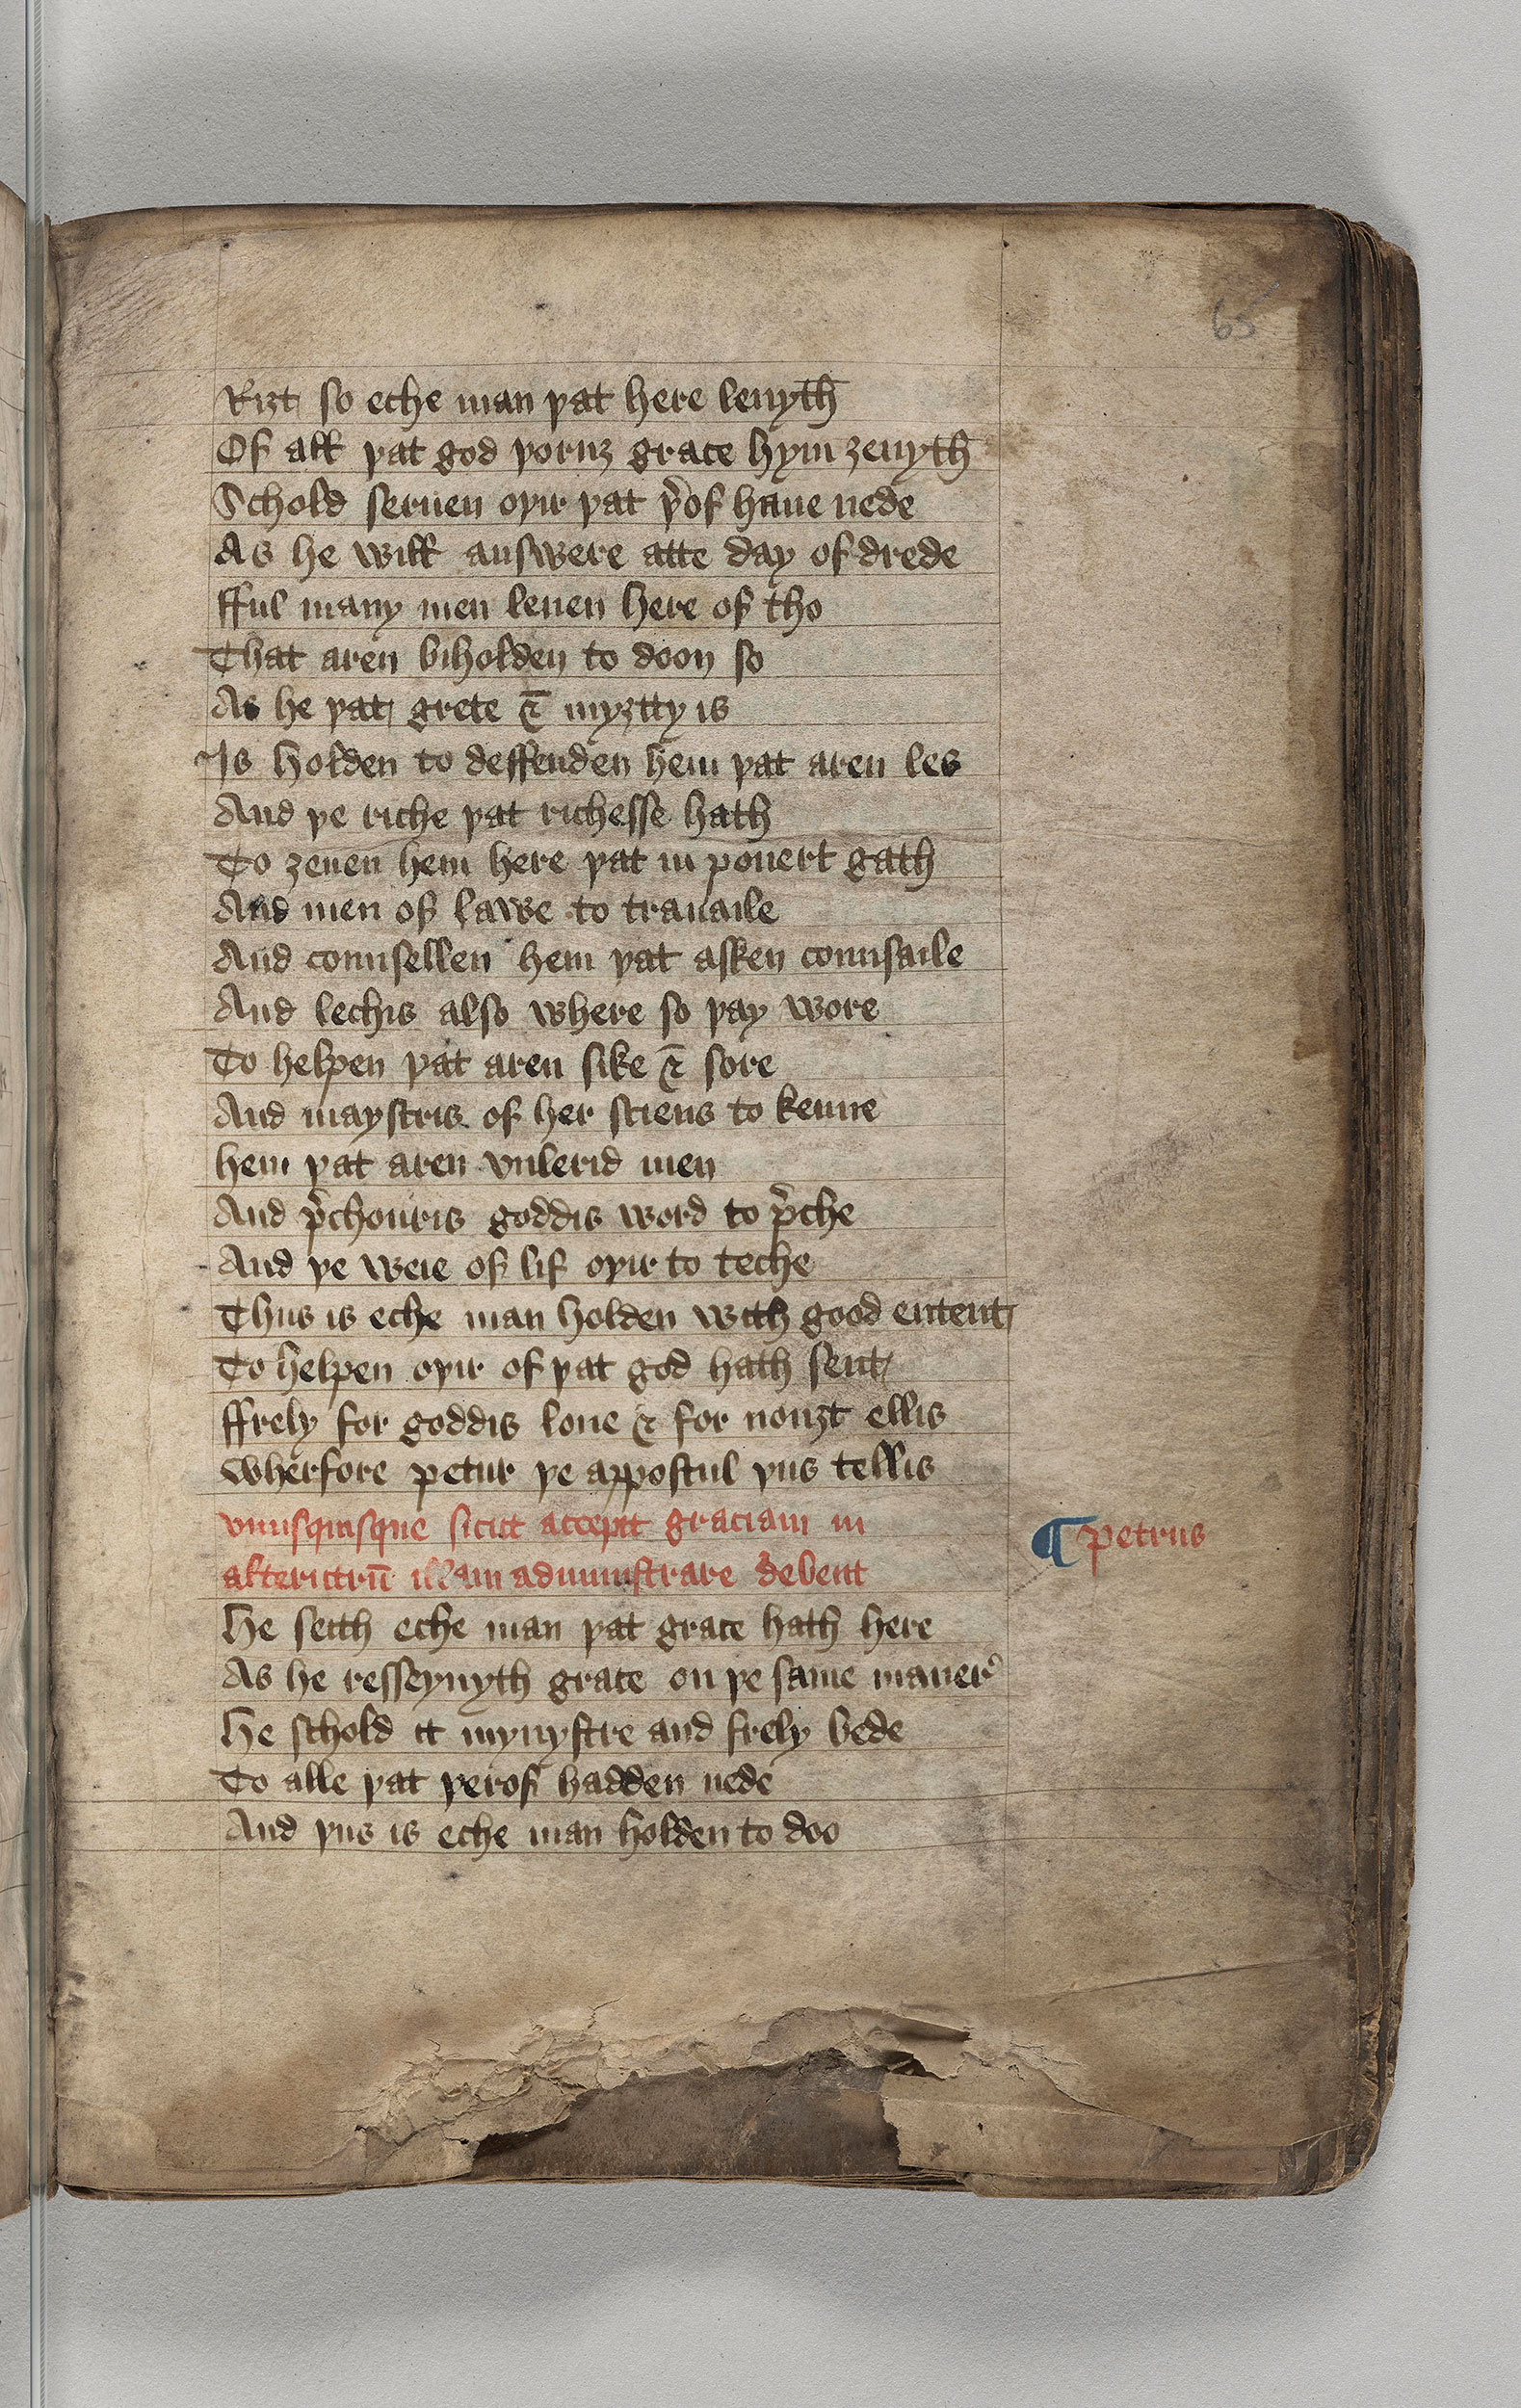 65
Riȝt so eche man þat here leuyth
Of all þat god þoruȝ grace hym ȝeuyth
Schold seruen oþir þat þ'of haue nede
As he will answere atte day of drede
fful many men leuen here of tho
That aren biholden to doon so
As he þat grete & myȝtty is
Is holden to deffenden hem þat aren les
And þe riche þat richesse hath
To ȝeuen hem here þat in pouert gath
And men of lawe to trauaile
And counsellen hem þat asken counsaile
And lechis also where so þay wore
To helpen þat aren sike & sore
And maystris of her sciens to kenne
hem þat aren vnlerid men
And p'chouris goddis word to p'che
And þe weie of lif oþir to teche
Thus is eche man holden with good entent
To helpen oþir of þat god hath sent
ffrely for goddis loue & for nouȝt ellis
Wherfore petur þe appostul þus tellis
vnusquisque sicut accepit graciam in
alterutrū illam administrare debent
¶ petrus
He seith eche man þat grace hath here
As he resseyuyth grace on þe same maner'
He schold it mynystre and frely bede
To alle þat þerof hadden nede
And þus is eche man holden to doo